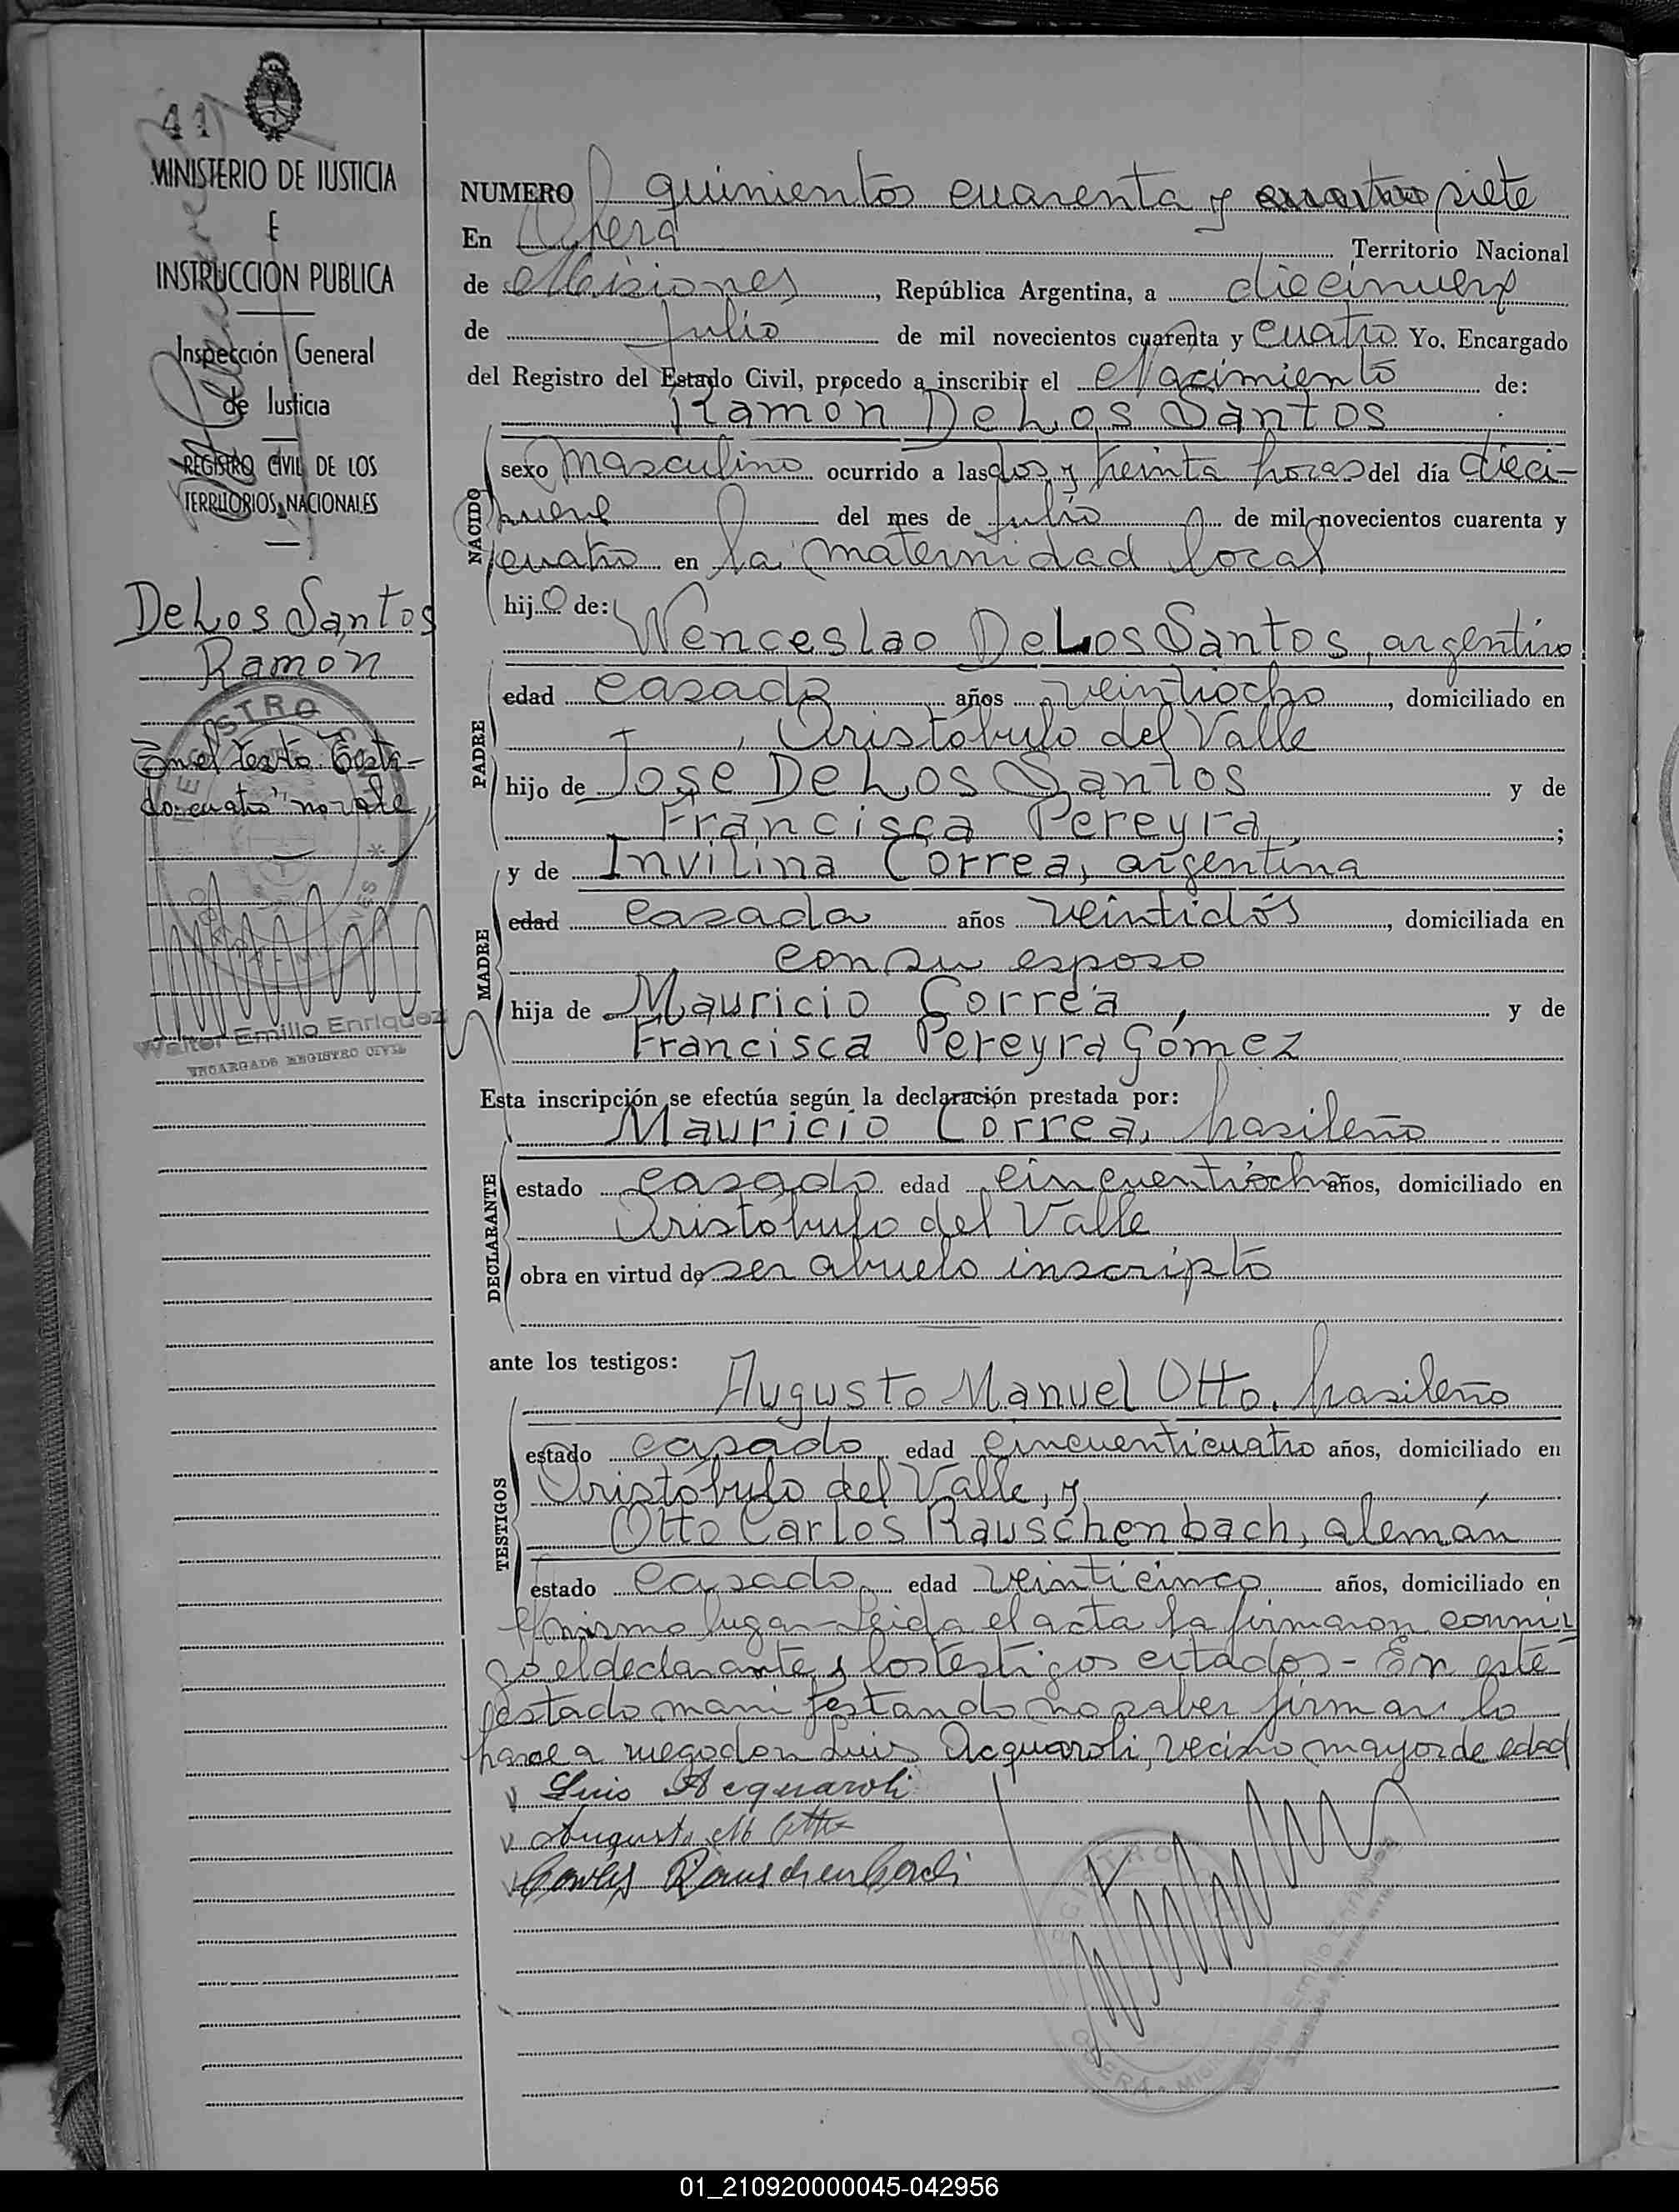 41
MINISTERIO DE JUSTICIA
E
INSTRUCCION PUBLICA
Inspección General
de Justicia
REGISTRO CIVIL DE LOS
TERRITORIOS NACIONALES
De Los Santos
Ramón
En el texto. Testa-
do: cuatro" no vale
Walter Emilio Enriquez
ENCARGADO REGISTRO CIVIL
NUMERO quinientos cuarenta y cuatro siete
En Oberá Territorio Nacional
de Misiones, República Argentina, a diecinueve
de julio de mil novecientos cuarenta y cuatro Yo, Encargado
del Registro del Estado Civil, procedo a inscribir el Nacimiento de:
Ramón De Los Santos
NACIDO
sexo masculino ocurrido a las dos y treinta horas del día dieci-
nueve del mes de julio de mil novecientos cuarenta y
cuatro en la maternidad local
hijo de:
Wenceslao De Los Santos, argentino
PADRE
edad casado años veintiocho, domiciliado en
Aristóbulo del Valle
hijo de José De Los Santos y de
Francisca Pereyra;
y de Invilina Correa, argentina
MADRE
edad casada años veintidós, domiciliada en
con su esposo
hija de Mauricio Correa, y de
Francisca Pereyra Gómez
Esta inscripción se efectúa según la declaración prestada por:
Mauricio Correa, brasileño
DECLARANTE
estado casado edad cincuentiocho años, domiciliado en
Aristóbulo del Valle
obra en virtud de ser abuelo inscripto
ante los testigos:
Augusto Manuel Otto, brasileño
TESTIGOS
estado casado edad cincuenticuatro años, domiciliado en
Aristóbulo del Valle, y
Otto Carlos Rauschenbach, alemán
estado casado edad veinticinco años, domiciliado en
el mismo lugar - Leída el acta la firmaron conmi-
go el declarante y los testigos citados - En este
estado manifestando no saber firmar lo
hace a ruego don Luis Acquaroli, vecino mayor de edad
Luis Acquaroli
Augusto M Otto
Carlos Rauschenbach
REGISTRO
OBERÁ - MISIONES
Walter Emilio Enriquez
01_210920000045-042956